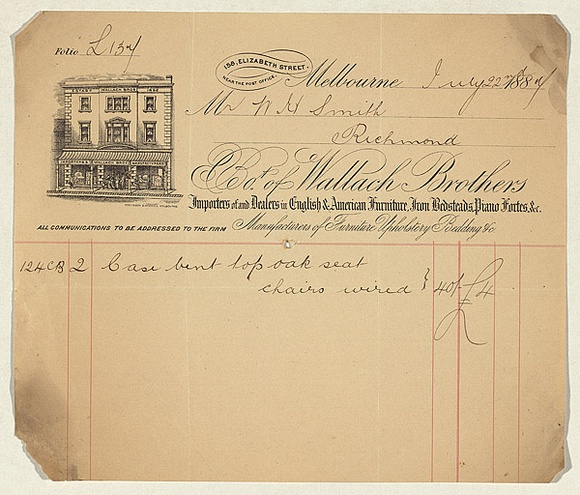 Folio L 137
158, ELIZABETH STREET,
NEAR THE POST OFFICE.
Melbourne July 22nd 1887
Mr W H Smith
Richmond
Bot. of Wallach Brothers
Importers of and Dealers in English & American Furniture, Iron Bedsteads, Piano Fortes, &c.
ALL COMMUNICATIONS TO BE ADDRESSED TO THE FIRM
Manufacturers of Furniture Upholstery Bedding &c
124CB 2 Case bent top oak seat
chairs wired } 40/- £4